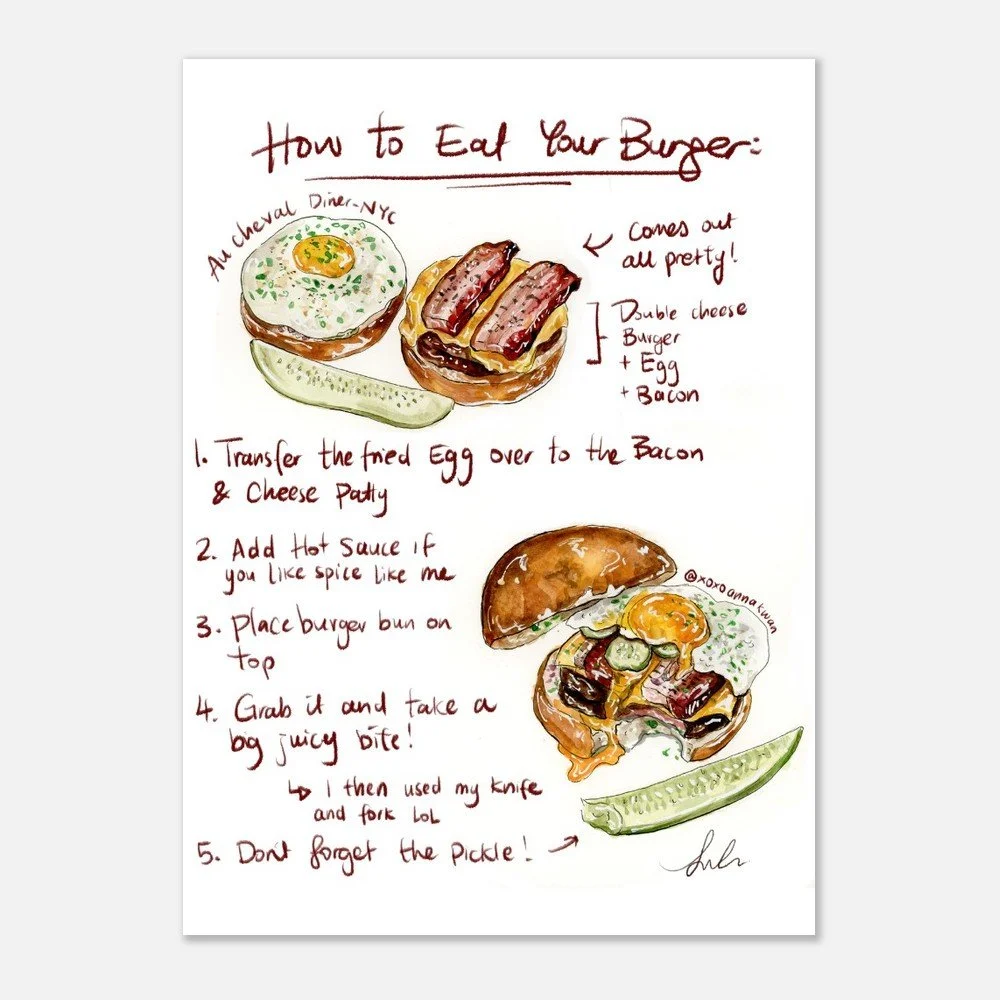 How to Eat Your Burger:
Au Cheval Diner-NYC
Comes out
all pretty!
Double cheese
Burger
+ Egg
+ Bacon
1. Transfer the fried Egg over to the Bacon
& Cheese Patty
2. Add Hot Sauce if
you like spice like me
@xoxoannakwan
3. Place burger bun on
top
4. Grab it and take a
big juicy bite!
↳ I then used my knife
and fork LOL
5. Don't forget the Pickle!